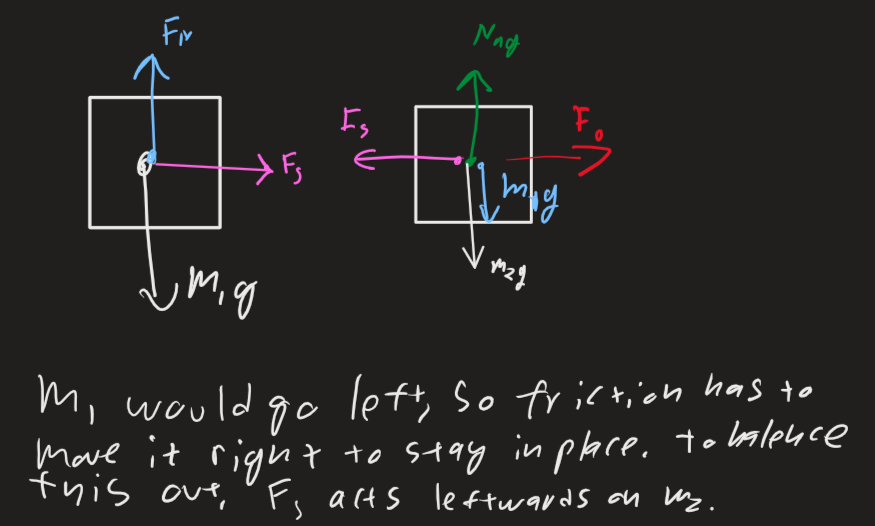 F_N
F_s
m_1g
F_s
m_1g
m_2g
F_0
m_1 would go left, so friction has to
move it right to stay in place. to balence
this out, F_s acts leftwards on m_2.